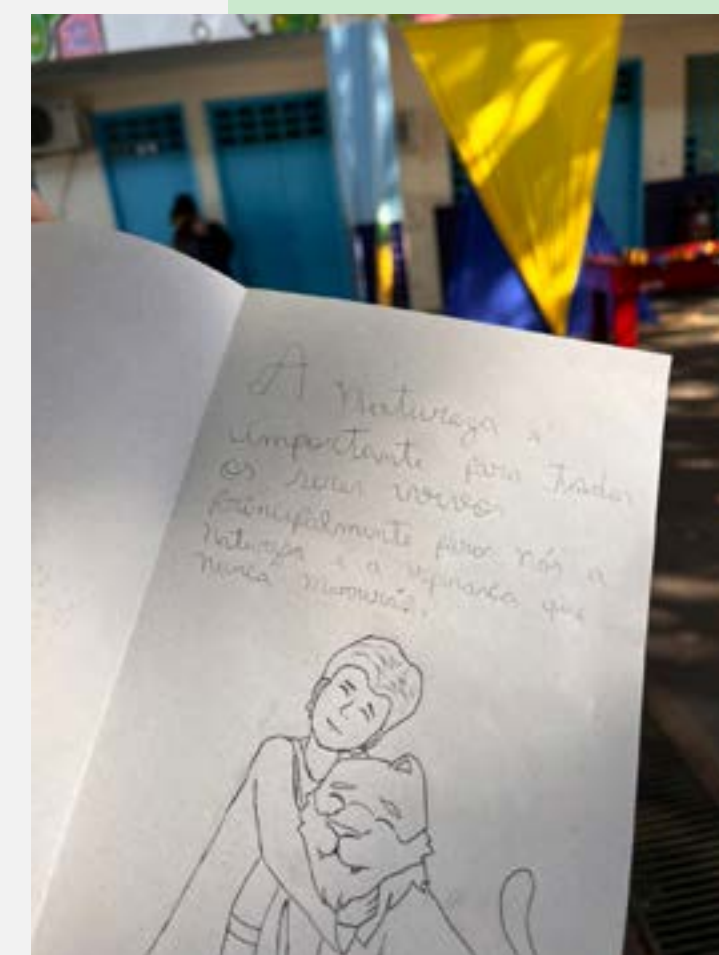 A Natureza é
importante para todos
os seres vivos
principalmente para nós a
natureza e a esperança que
nunca morrerás.